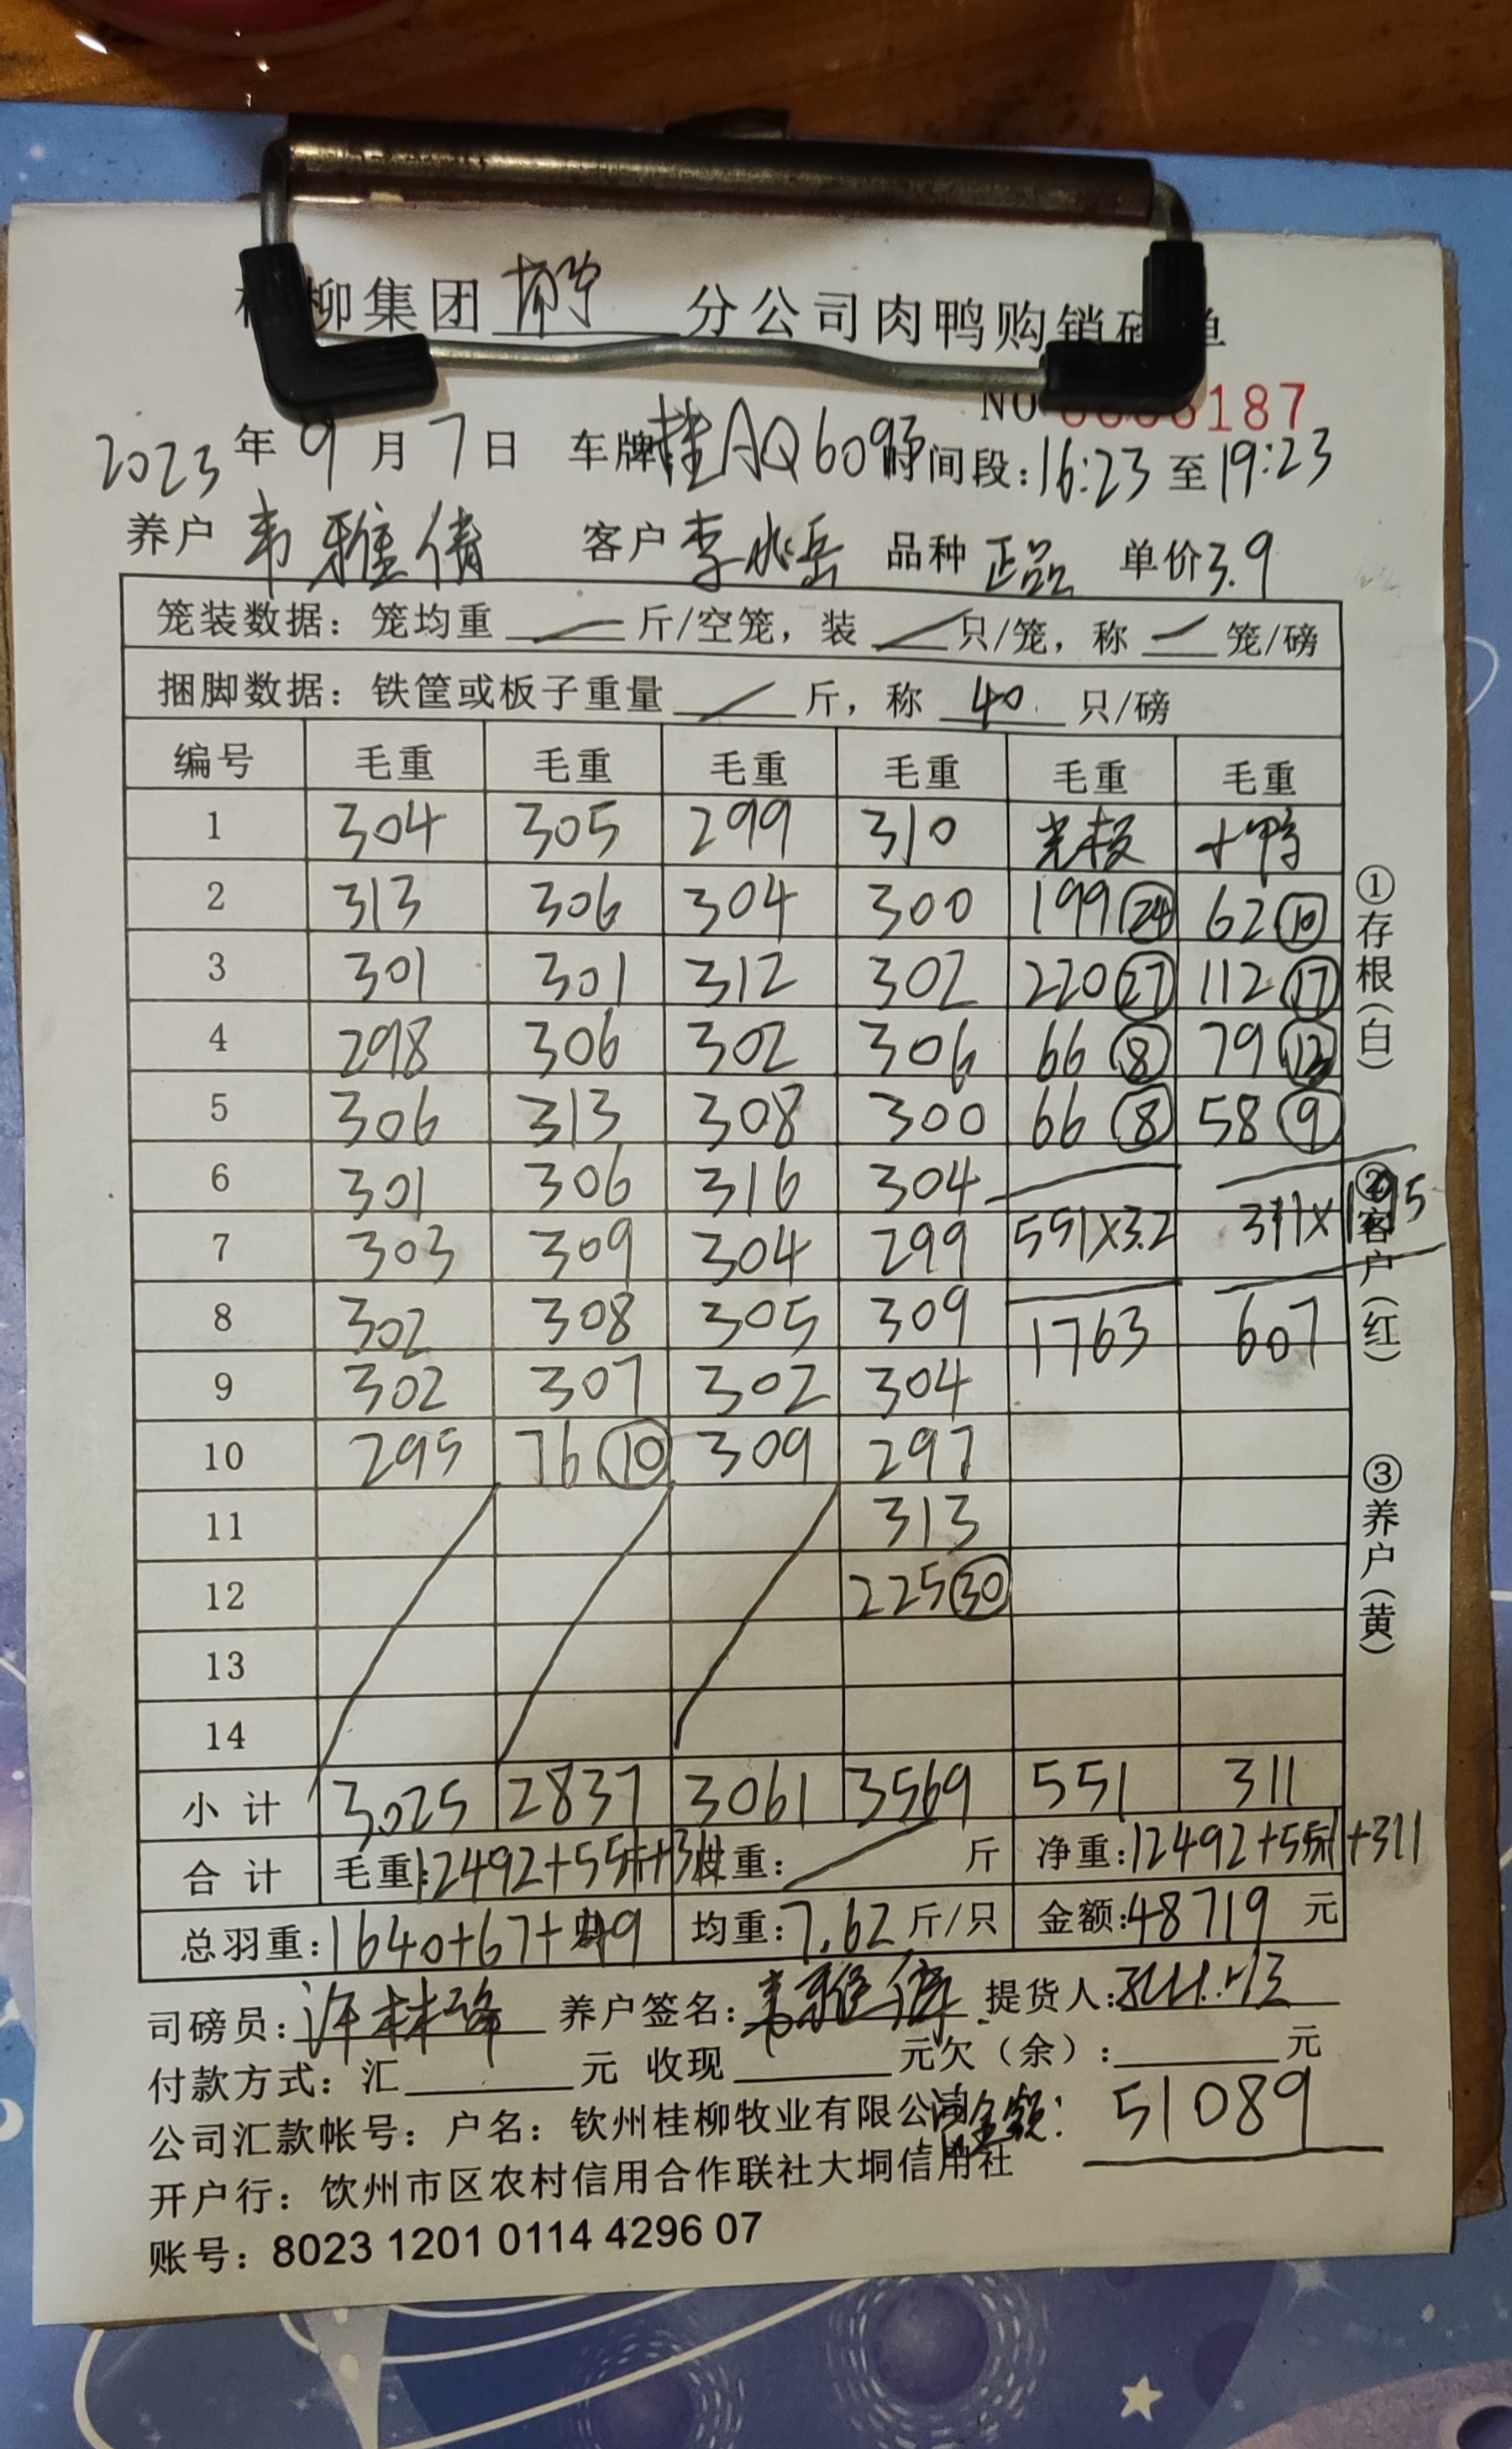 柳集团 南宁 分公司肉鸭购销磅单
NO 187
2023年9月7日 车牌桂AQ609 时间段:16:23至19:23
养户 韦雅倩 客户 李 岳 品种 正品 单价3.9
笼装数据: 笼均重 斤/空笼, 装 只/笼, 称 笼/磅
捆脚数据: 铁筐或板子重量 斤, 称 40 只/磅
编号 毛重 毛重 毛重 毛重 毛重 毛重
1 304 305 299 310 光板 小鸭
2 313 306 304 300 199 24 62 10
3 301 301 312 302 220 27 112 17
4 298 306 302 306 66 8 79 13
5 306 313 308 300 66 8 58 9
6 301 306 316 304
7 303 309 304 299 551×3.2 311×1.95
8 302 308 305 309 1763 607
9 302 307 302 304
10 295 76 10 309 297
11 313
12 225 30
13
14
小计 3025 2837 3061 3569 551 311
合计 毛重:12492+551+311 重: 斤 净重:12492+551+311
总羽重:1640+67+49 均重:7.62斤/只 金额:48719元
司磅员: 许林 养户签名:韦雅倩 提货人:
付款方式: 汇 元 收现 元欠(余): 元
公司汇款帐号: 户名: 钦州桂柳牧业有限公司 总金额: 51089
开户行: 钦州市区农村信用合作联社大垌信用社
账号: 8023 1201 0114 4296 07
①存根(白)
②客户(红)
③养户(黄)